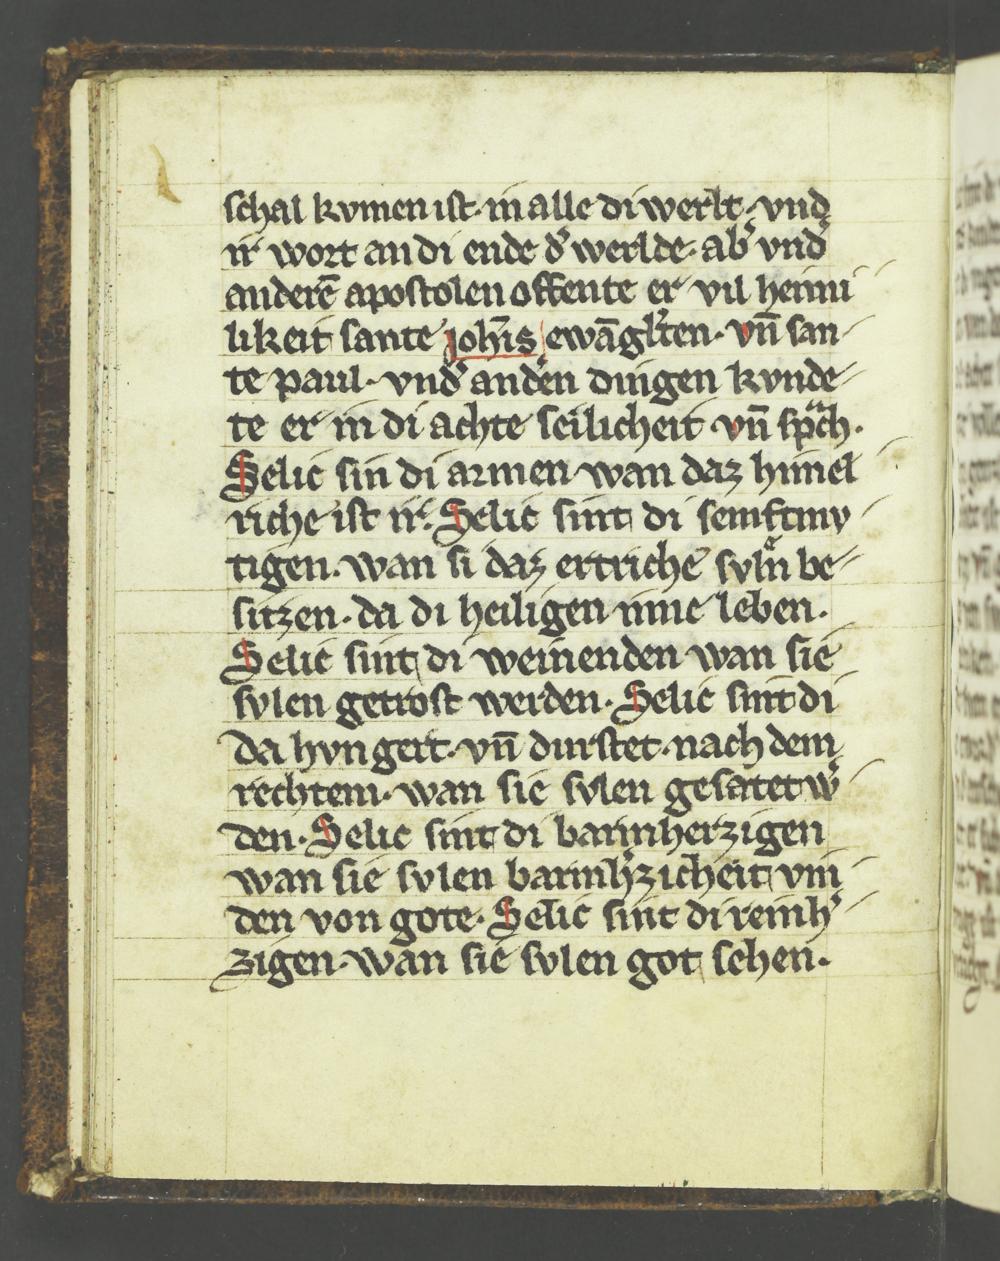 schal kvmen ist· in alle di werlt· vnd
ir wort an di ende d͛ werlde· ab͛ vnd͛
anderē apostolen offente er vil heimi
likeit sante joh̄is ewāgl̄ten· vn̄ san
te paul· vnd͛ and͛en dingen kvnde
te er in di achte seilicheit vn̄ sp̄ͣch·
Selic sin di armen wan daz himel
riche ist ir· Selic sint di semftmv
tigen· wan si daz ertriche svln be
sitzen· da di heiligen inne leben·
Selic sint di weinenden wan sie
svlen getrost werden· Selic sint di
da hvngert· vn̄ durstet· nach dem
rechtem· wan sie svlen gesatet w͛
den· Selic sint di barmherzigen
wan sie svlen barmh͛zicheit vin
den von gote· Selic sint di reinh͛
zigen· wan sie svlen got sehen·